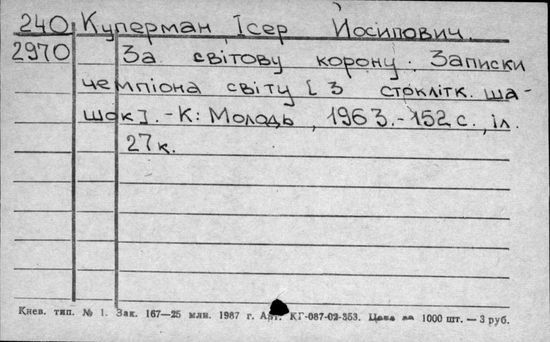 240 Куперман Ісер Йосипович.
2970 За світову корону. Записки
чемпіона світу [ З стоклітк. ша-
шок]. - К: Молодь, 1963. - 152 с., іл.
27 к.
Киев. тип. № 1. Зак. 167—25 млн. 1987 г. Арт. КГ-087-02-353. Цена за 1000 шт. — 3 руб.